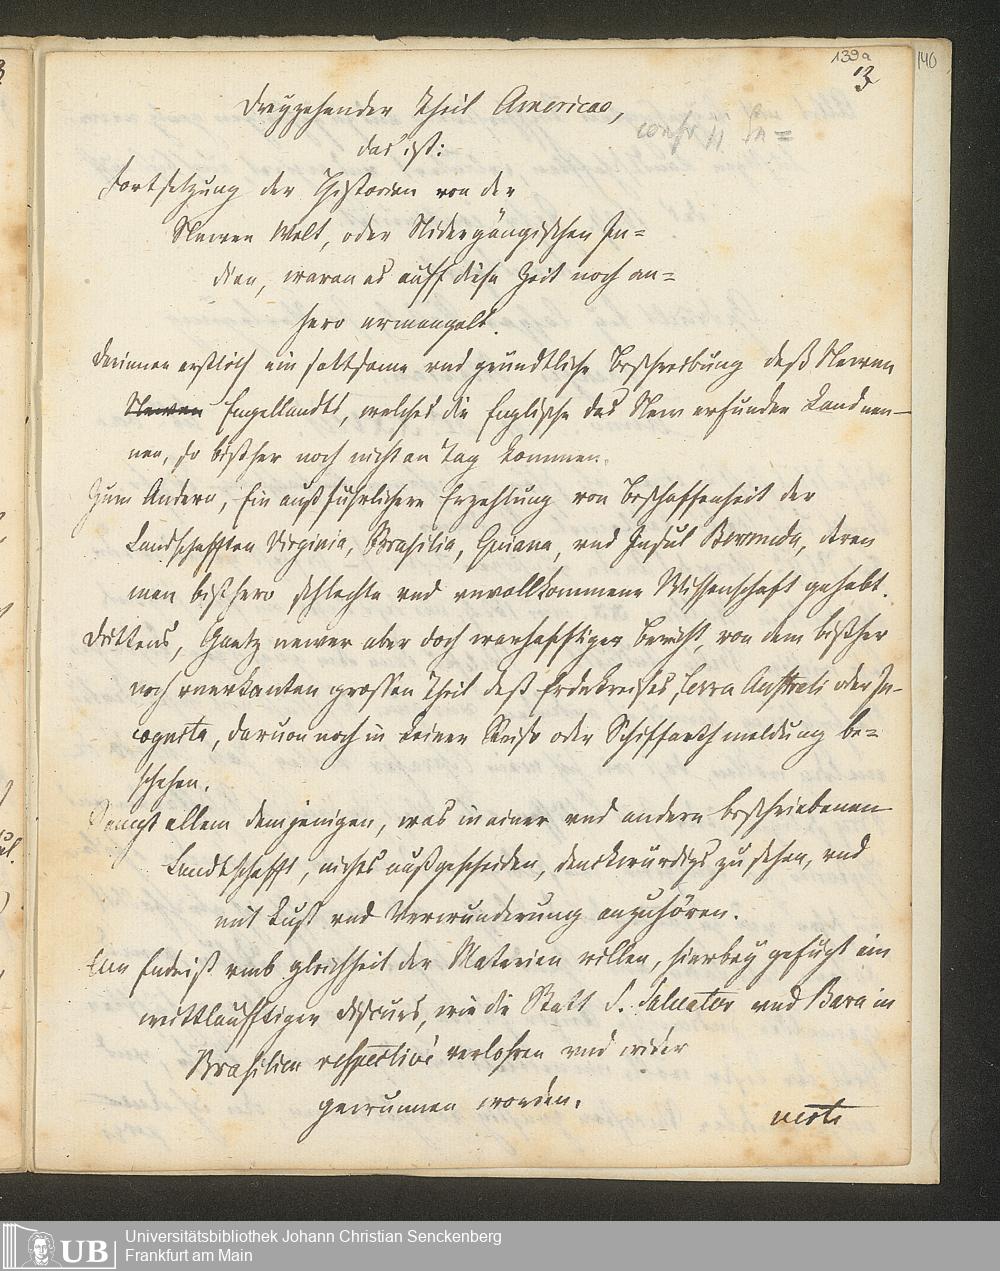 139a
140
13
Dreyzehender Theil Americae,
confr 11
das ist:
Fortsetzung der Historien von der
Newen Welt, oder Nidergängischen In=
dien, waran es auff diese Zeit noch an=
hero ermangelt.
Darinnen erstlich ein sattsame vnd gründtliche Beschreibung deß Newen
Newen Engellandts, welches die Englische das New erfunden Land nen-
nen, so bißher noch nicht an Tag kommen.
Zum Andern, Ein außführlichere Erzehlung von Beschaffenheit der
Landschafften Virginia, Brasilia, Guiana, vnd Insul Bermuda, deren
man bißhero schlechte vnd vnvollkommene Wissenschaft gehabt.
Drittens, Gantz newer aber doch warhafftiger Bericht, von dem bißher
noch vnerkanten grossen Theil deß Erdekreises, Terra Australi oder In-
cognita, daruon noch in keiner Reise oder Schiffarth meldung be=
schehen.
Sampt allem demjenigen, was in einer vnd andern beschriebenen
Landtschafft, nichts außgescheiden, denckwürdigs zu sehen, vnd
mit Lust vnd Verwunderung anzuhören.
Am Ende ist vmb gleichheit der Materien willen, hierbey gefügt ein
weittläufftiger Discurs, wie die Statt S. Saluator vnd Bara in
Brasilien respective verlohren vnd wider
gewunnen worden.
verte
UB
Universitätsbibliothek Johann Christian Senckenberg
Frankfurt am Main